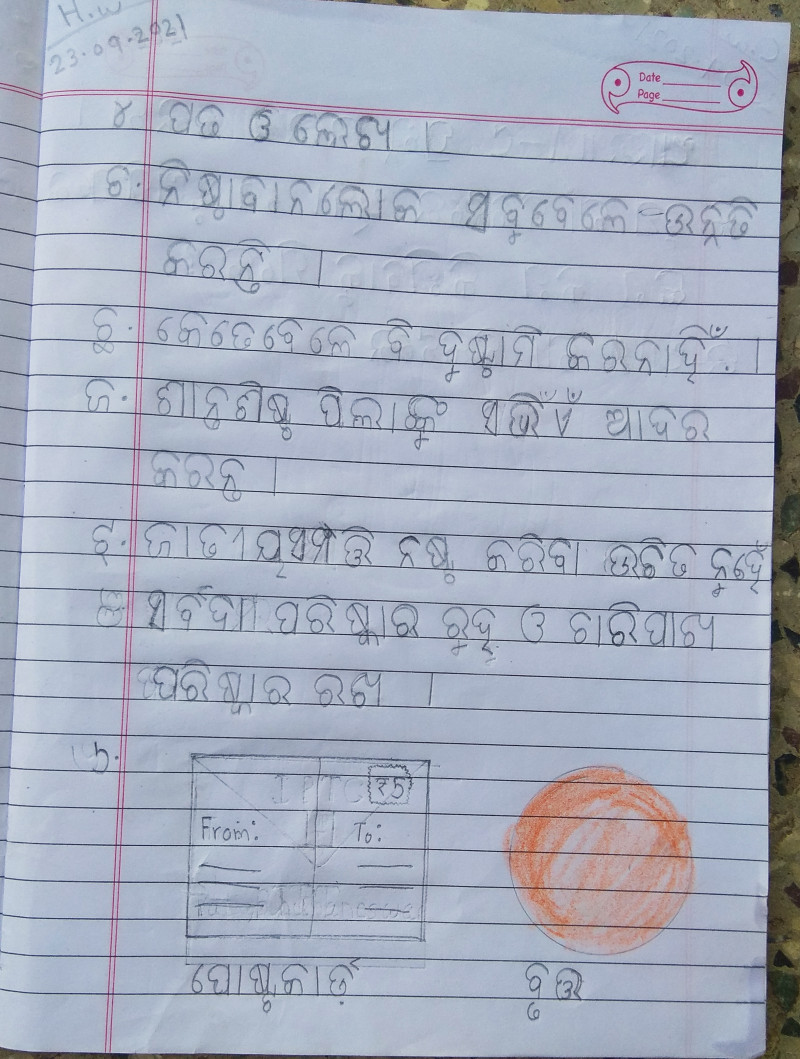 H.W
23.09.2021
Date
Page
୪ ପଢ ଓ ଲେଖ ।
ଚ. ନିଷ୍ଠାବାନଲୋକ ସବୁବେଳେ ଉନ୍ନତି
କରନ୍ତି ।
ଛ. କେତେବେଳେ ବି ଦୁଷ୍ଟାମି କରନାହିଁ. ।
ଜ. ଶାନ୍ତଶିଷ୍ଟ ପିଲାଙ୍କୁ ସଭିଏଁ ଆଦର
କରନ୍ତି ।
ଝ. ଜାତୀୟସମ୍ପତ୍ତି ନଷ୍ଟ କରିବା ଉଚିତ ନୁହେଁ
ଞ ସର୍ବଦା ପରିଷ୍କାର ରୁହ ଓ ଚାରିପାଖ
ପରିଷ୍କାର ରଖ ।
୨.
₹5
From: To:
ପୋଷ୍ଟକାର୍ଡ଼ ବୃତ୍ତ